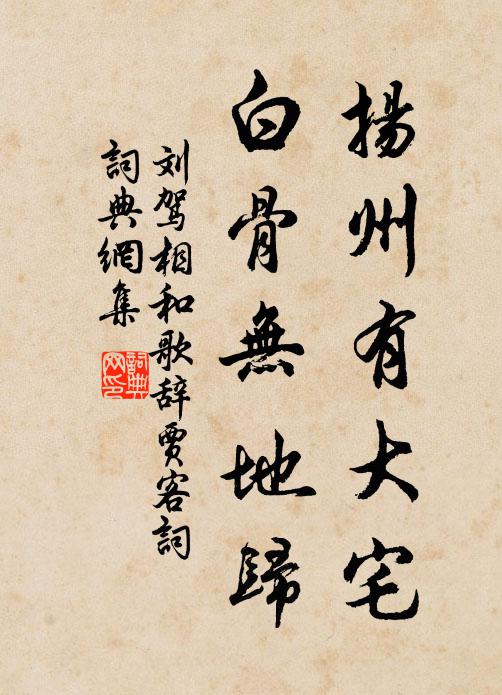 揚州有大宅
白骨無地歸
刘驾相和歌辞賈客詞
詞典網集
詞典网印